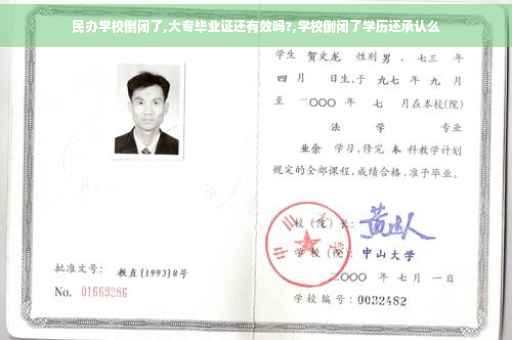 民办学校倒闭了,大专毕业证还有效吗?,学校倒闭了学历还承认么
学生 贺文龙 性别 男 、七三 年
四 月 日生,于 九七 年 九 月
至 二〇〇〇 年 七 月在本校(院)
法 学 专业
业余 学习,修完 本 科教学计划
规定的全部课程,成绩合格,准予毕业。
校(院)长:
学校(院): 中山大学
二〇〇〇 年 七 月 一 日
学校编号: 0032482
批准文号: 教直[1993]8号
No. 01669286